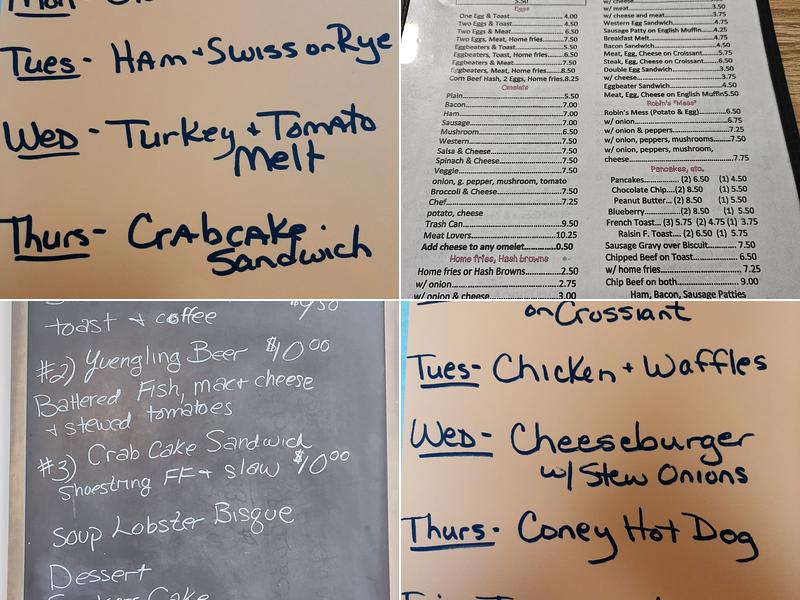 Tues- Ham + Swiss on Rye
Wed - Turkey + Tomato
Melt
Thurs- Crabcake
Sandwich
5.50
Eggs
One Egg & Toast 4.00
Two Eggs & Toast 4.50
Two Eggs & Meat 6.50
Two Eggs, Meat, Home fries 7.50
Eggbeaters & Toast 5.50
Eggbeaters, Toast, Home fries 6.50
Eggbeaters & Meat 7.50
Eggbeaters, Meat, Home fries 8.50
Corn Beef Hash, 2 Eggs, Home fries 8.25
Omelets
Plain 5.50
Bacon 7.00
Ham 7.00
Sausage 7.00
Mushroom 6.50
Western 7.50
Salsa & Cheese 7.50
Spinach & Cheese 7.50
Veggie 7.50
onion, g. pepper, mushroom, tomato
Broccoli & Cheese 7.50
Chef 7.25
potato, cheese
Trash Can 9.50
Meat Lovers 10.25
Add cheese to any omelet 0.50
Home fries, Hash browns
Home fries or Hash Browns 2.50
w/ onion 2.75
w/ onion & cheese 3.00
w/ cheese
w/ meat 3.50
w/ cheese and meat 3.75
Western Egg Sandwich 4.75
Sausage Patty on English Muffin 4.25
Breakfast Melt
Bacon Sandwich 4.50
Meat, Egg, Cheese on Croissant 5.75
Steak, Egg, Cheese on Croissant
Double Egg Sandwich 3.50
w/ cheese 3.75
Eggbeater Sandwich 4.50
Meat, Egg, Cheese on English Muffin 5.50
Robin's "Mess"
Robin's Mess (Potato & Egg) 6.50
w/ onion 6.75
w/ onion & peppers 7.25
w/ onion, peppers, mushrooms 7.50
w/ onion, peppers, mushroom,
cheese 7.75
Pancakes, etc.
Pancakes (2) 6.50 (1) 4.50
Chocolate Chip (2) 8.50 (1) 5.50
Peanut Butter (2) 8.50 (1) 5.50
Blueberry (2) 8.50 (1) 5.50
French Toast (3) 5.75 (2) 4.75 (1) 3.75
Raisin F. Toast (2) 6.50 (1) 5.75
Sausage Gravy over Biscuit 7.50
Chipped Beef on Toast 6.50
w/ home fries 7.25
Chip Beef on both 9.00
Ham, Bacon, Sausage Patties
toast + coffee
#2) Yuengling Beer $10.00
Battered Fish, mac + cheese
+ stewed tomatoes
#3) Crab Cake Sandwich
Shoestring FF + slaw $10.00
Soup Lobster Bisque
Dessert
on Crossiant
Tues- Chicken + Waffles
Wed - Cheeseburger
w/ Stew Onions
Thurs- Coney Hot Dog